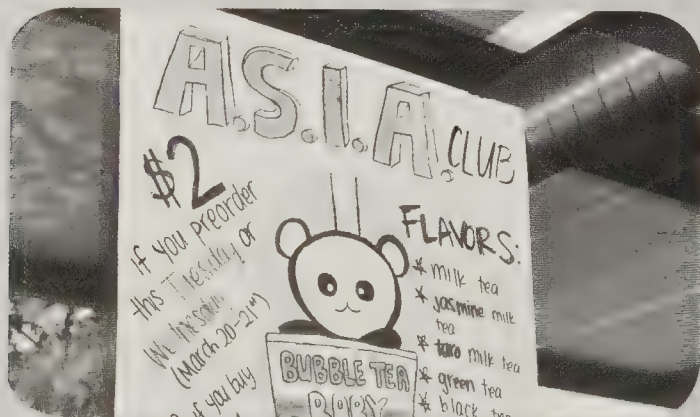 A.S.I.A. CLUB
$2
If you preorder
this Tuesday or
(March 20-21st)
if you buy
FLAVORS:
* milk tea
* jasmine milk
tea
* taro milk tea
* green tea
* black tea
BUBBLE TEA